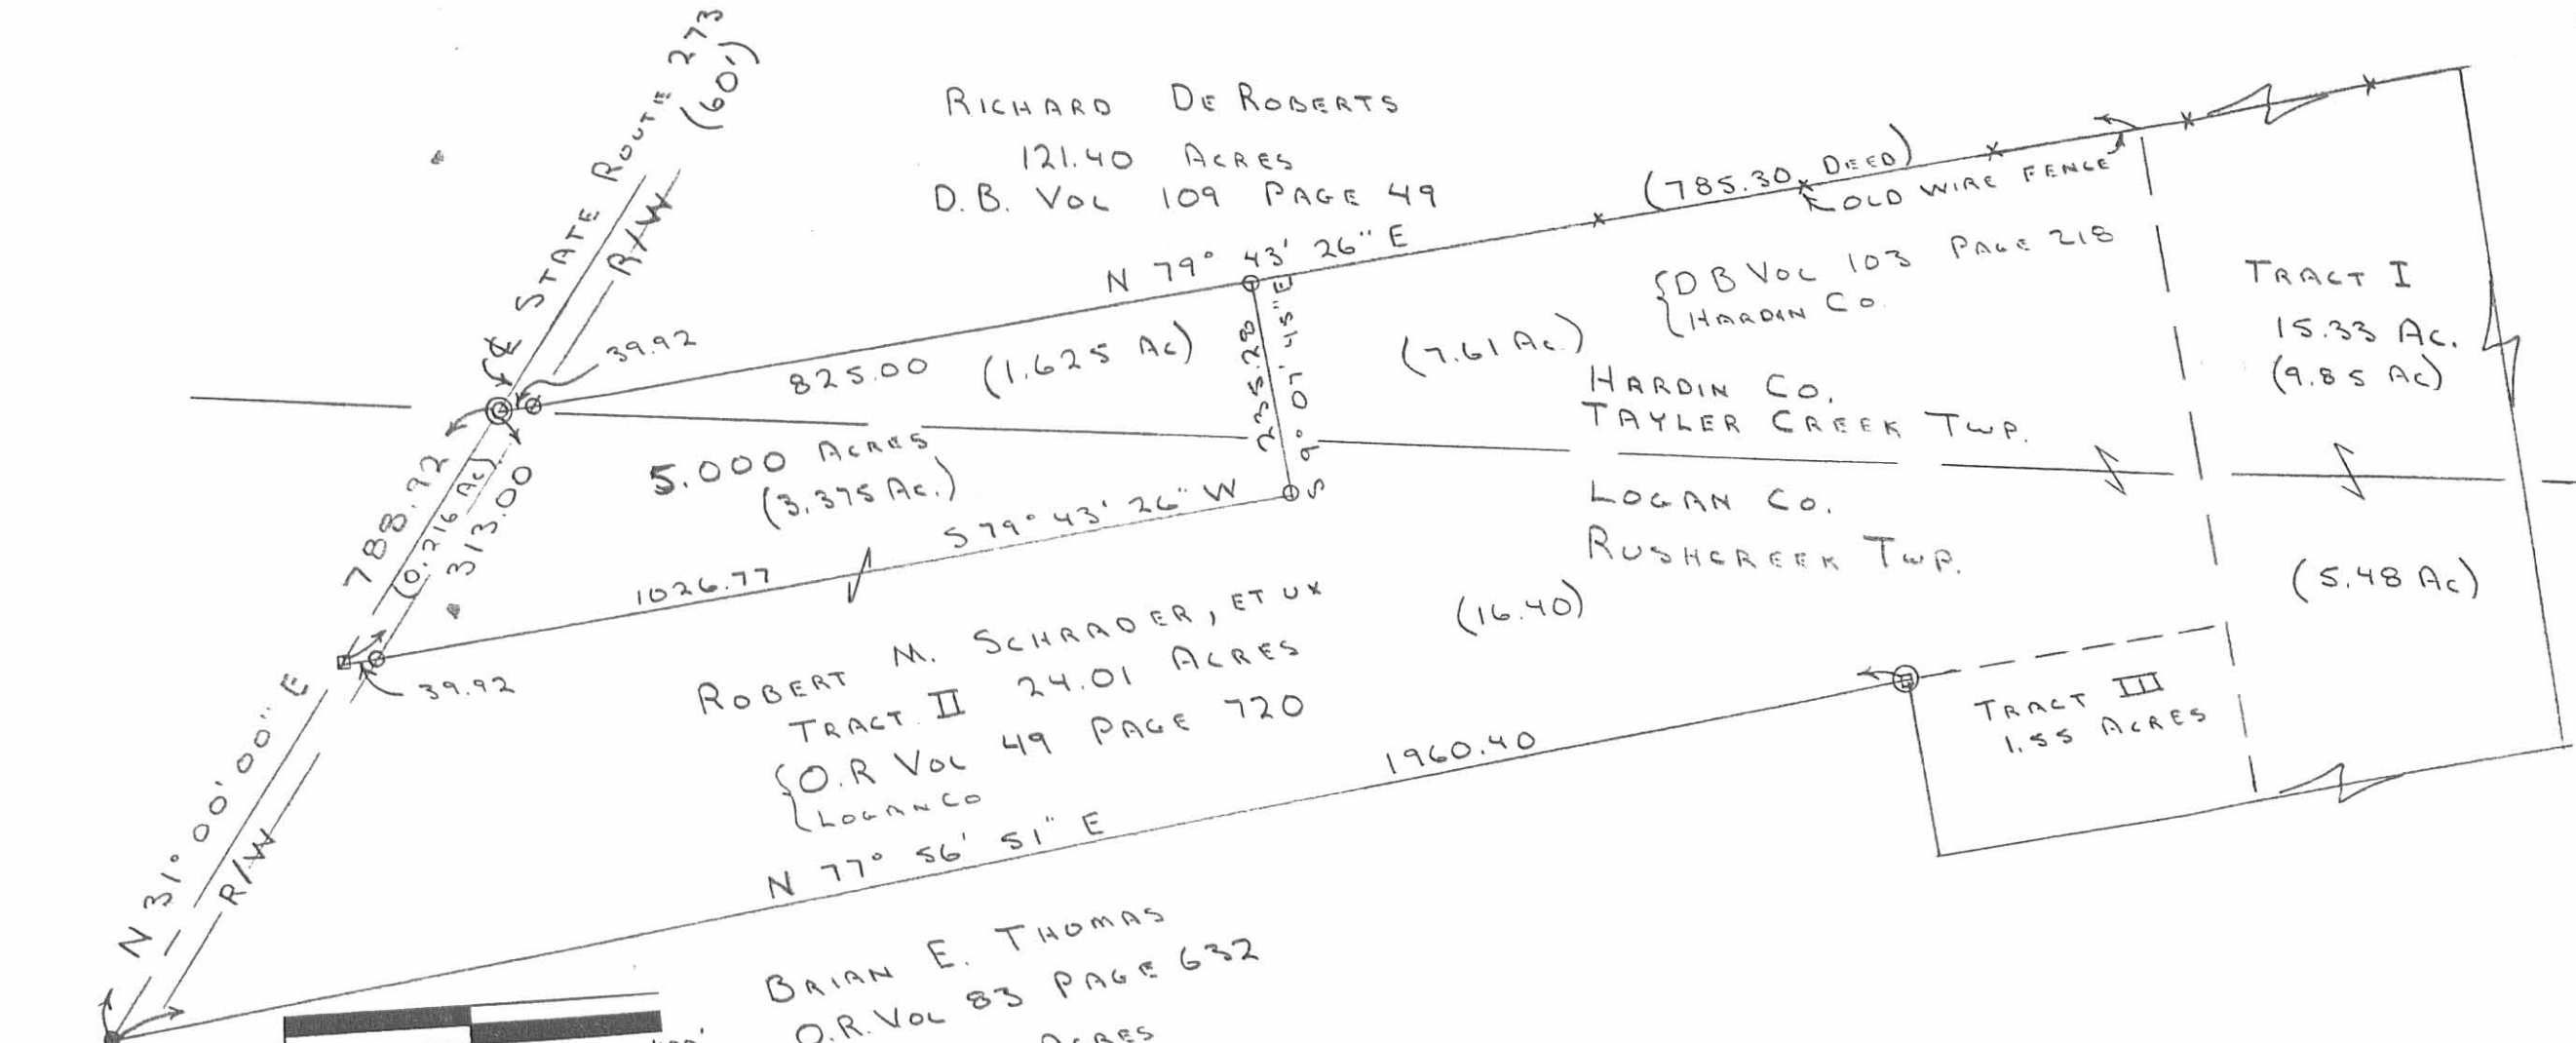 STATE ROUTE 273
(60')
R/W
RICHARD DE ROBERTS
121.40 ACRES
D.B. VOL 109 PAGE 49
(785.30 DEED)
OLD WIRE FENCE
N 79° 43' 26" E
{DB VOL 103 PAGE 218
{HARDIN CO.
TRACT I
15.33 AC.
(9.85 AC)
39.92
825.00 (1.625 AC)
235.28
S 9° 07' 45" E
(7.61 AC.)
HARDIN CO.
TAYLER CREEK TWP.
LOGAN CO.
RUSHCREEK TWP.
5.000 ACRES
(3.375 AC.)
788.92
(0.216 AC)
313.00
S 79° 43' 26" W
1026.77
39.92
(5.48 AC)
(16.40)
ROBERT M. SCHRADER, ET UX
TRACT II 24.01 ACRES
{O.R VOL 49 PAGE 720
{LOGAN CO
TRACT III
1.55 ACRES
N 31° 00' 00" E
R/W
1960.40
N 77° 56' 51" E
BRIAN E. THOMAS
O.R. VOL 83 PAGE 632
ACRES